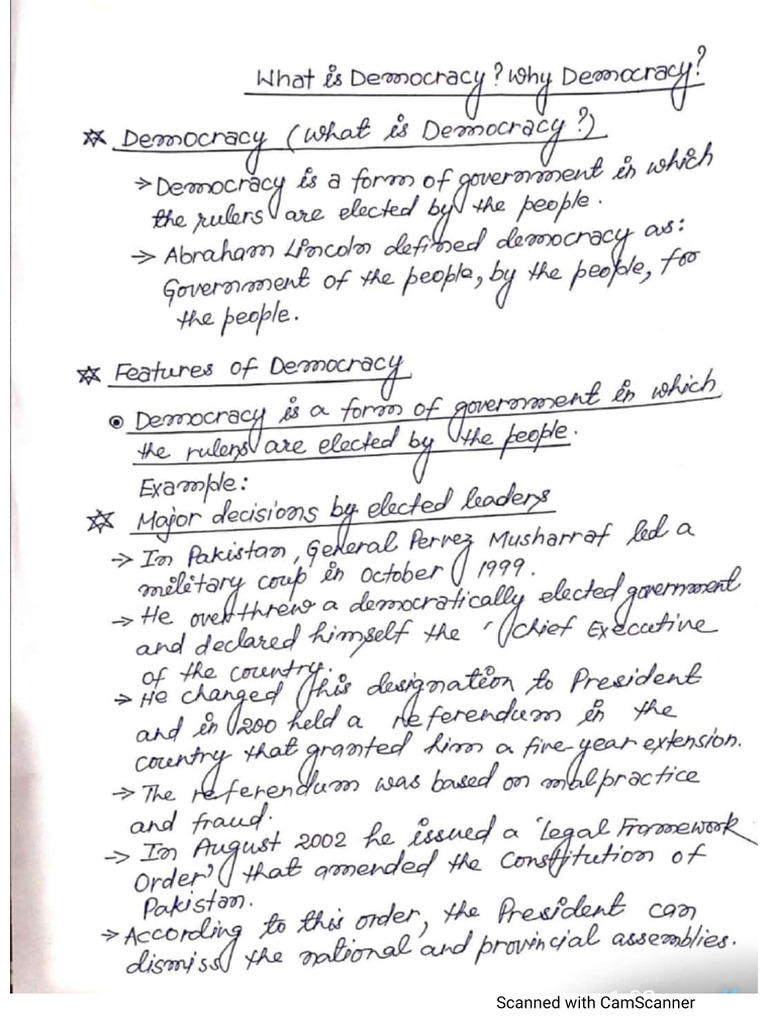 What is Democracy? Why Democracy?
☆ Democracy (What is Democracy?)
→ Democracy is a form of government in which
the rulers are elected by the people.
→ Abraham Lincoln defined democracy as:
Government of the people, by the people, for
the people.
☆ Features of Democracy
⊙ Democracy is a form of government in which
the rulers are elected by the people.
Example:
☆ Major decisions by elected leaders
→ In Pakistan, General Pervez Musharraf led a
military coup in October 1999.
→ He overthrew a democratically elected government
and declared himself the 'Chief Executive
of the country.
→ He changed his designation to President
and in 200 held a referendum in the
country that granted him a five-year extension.
→ The referendum was based on malpractice
and fraud.
→ In August 2002 he issued a 'Legal Framework
Order' that amended the Constitution of
Pakistan.
→ According to this order, the President can
dismiss the national and provincial assemblies.
Scanned with CamScanner